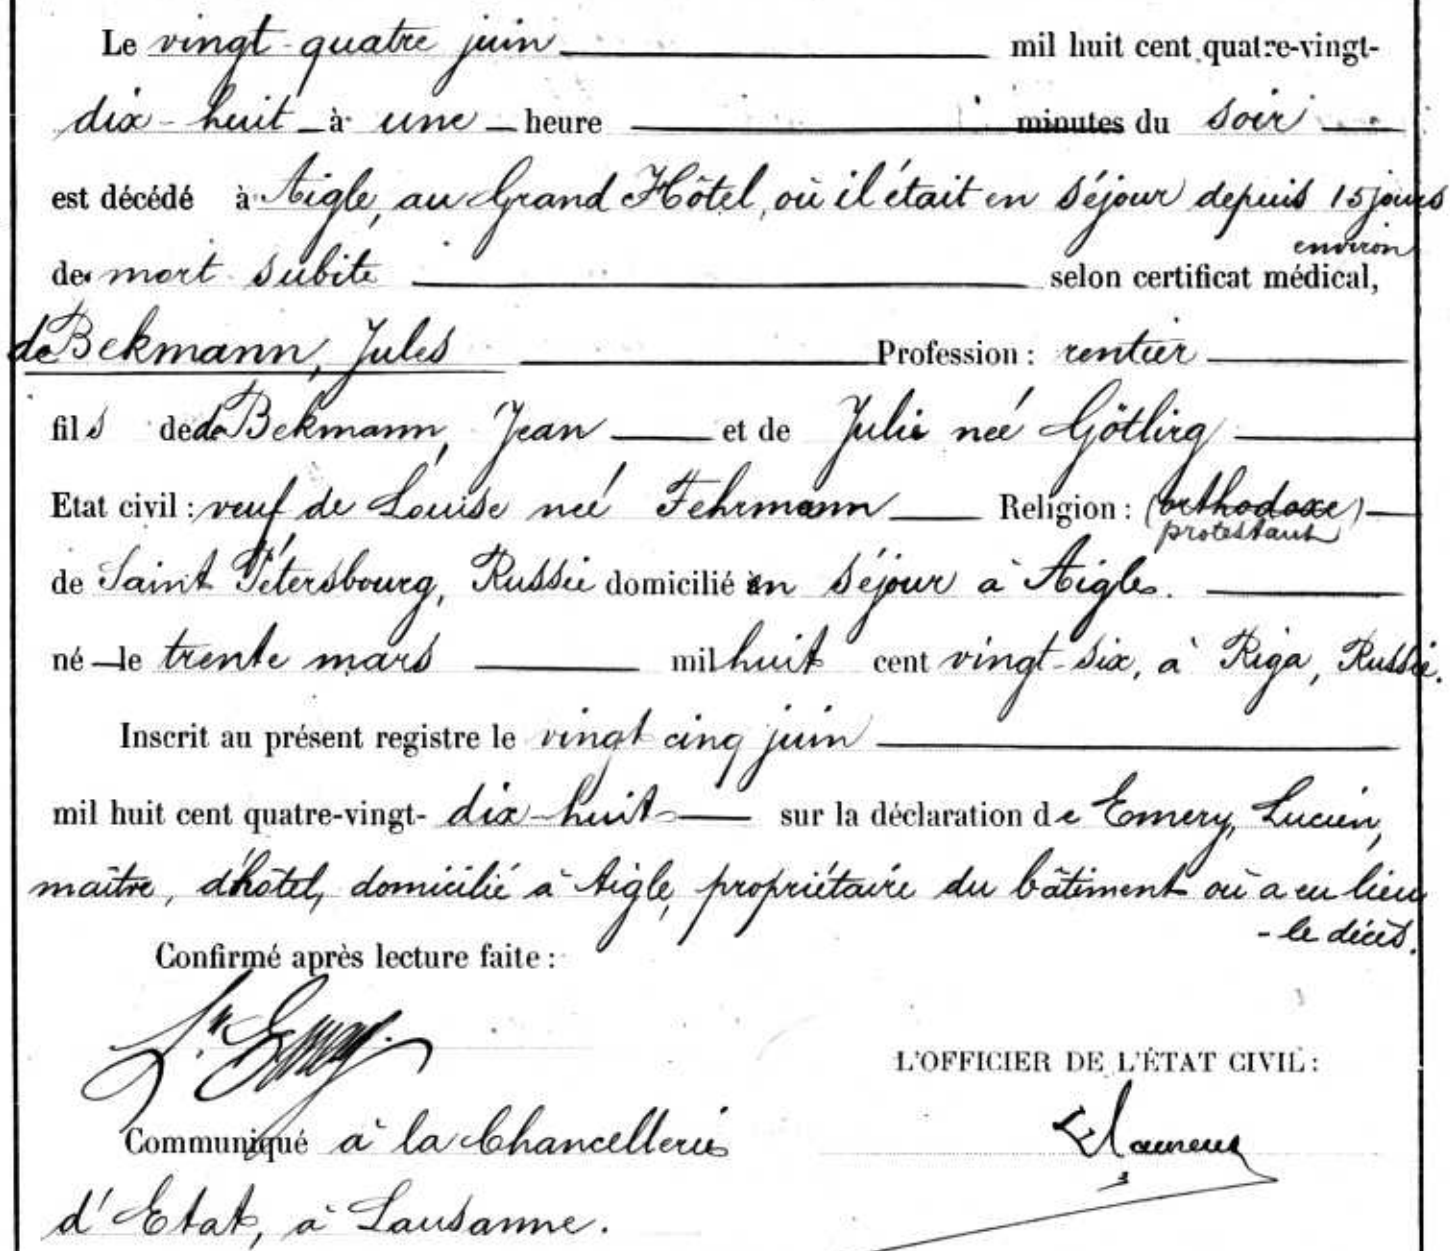 Le vingt-quatre juin mil huit cent quatre-vingt-
dix-huit à une heure minutes du soir
est décédé à Aigle, au Grand Hôtel, où il était en séjour depuis 15 jours
environ
de mort subite selon certificat médical,
de Bekmann, Jules Profession : rentier
fils de de Bekmann, Jean et de Julie neé Götlirg
Etat civil : veuf de Louise neé Fehrmann Religion : (orthodoxe)
protestant
de Saint Pétersbourg, Russie domicilié en séjour à Aigle.
né le trente mars mil huit cent vingt-six, à Riga, Russie.
Inscrit au présent registre le vingt cinq juin
mil huit cent quatre-vingt- dix-huit sur la déclaration de Emery, Lucien,
maître, d'hôtel, domicilié à Aigle, propriétaire du bâtiment où a eu lieu
- le décès.
Confirmé après lecture faite :
L'OFFICIER DE L'ÉTAT CIVIL :
Communiqué à la Chancellerie
d'Etat, à Lausanne.